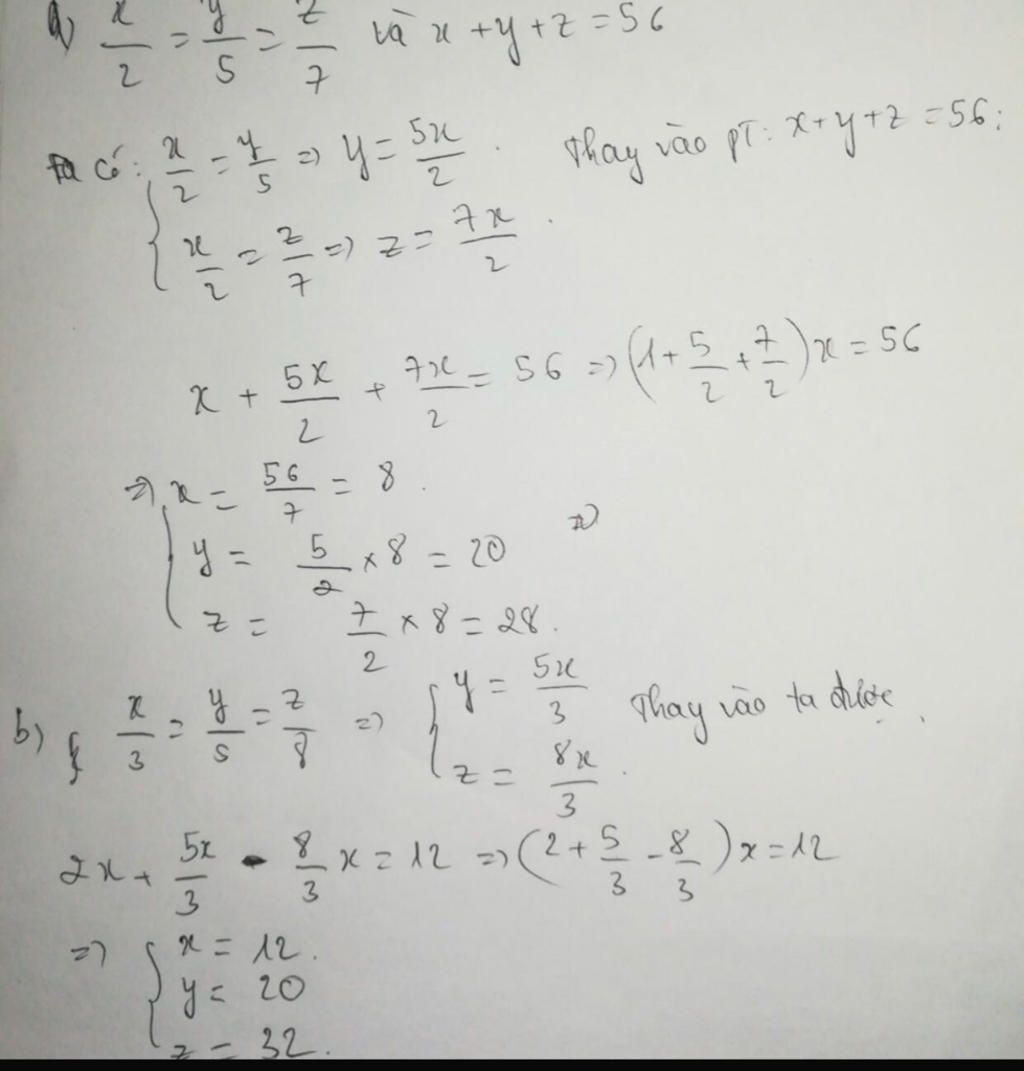 a) x/2 = y/5 = z/7 và x + y + z = 56
Ta có: { x/2 = y/5 => y = 5x/2 . Thay vào pT: x + y + z = 56:
x/2 = z/7 => z = 7x/2 .
x + 5x/2 + 7x/2 = 56 => (1 + 5/2 + 7/2)x = 56
=> { x = 56/7 = 8 .
y = 5/2 × 8 = 20 =>
z = 7/2 × 8 = 28.
b) { x/3 = y/5 = z/8 => { y = 5x/3 Thay vào ta được .
z = 8x/3 .
2x + 5x/3 - 8/3 x = 12 => (2 + 5/3 - 8/3)x = 12
=> { x = 12.
y = 20
z = 32.